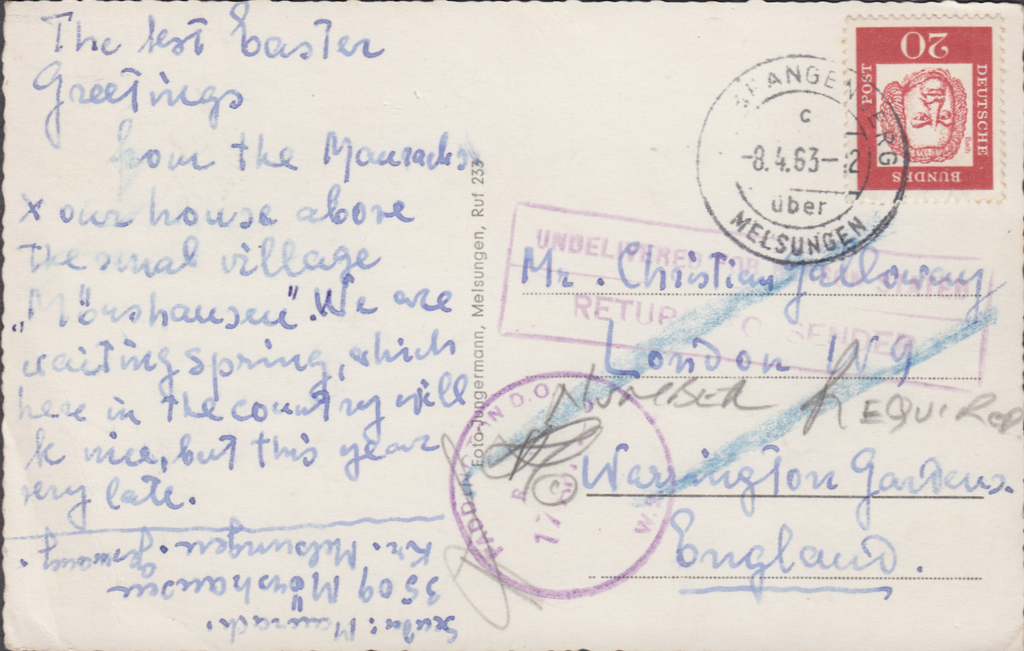 The best Easter
Greetings
from the Mauracks
x our house above
the smal village
„Mörshausen". We are
waiting spring, which
here in the country will
be nice, but this year
very late.
Sender: Maurack.
3509 Mörshausen
Kr. Melsungen. Germany.
Foto-Jungermann, Melsungen, Ruf 233
20
DEUTSCHE
BUNDES
POST
Bach
SPANGENBERG
c
-8.4.63-12
über
MELSUNGEN
UNDELIVERED FOR
RETURN TO SENDER
Mr. Christian Galloway
London W9
NUMBER REQUIRED
Warrington Gardens.
England.
PADDINGTON D.O.
17
W.2